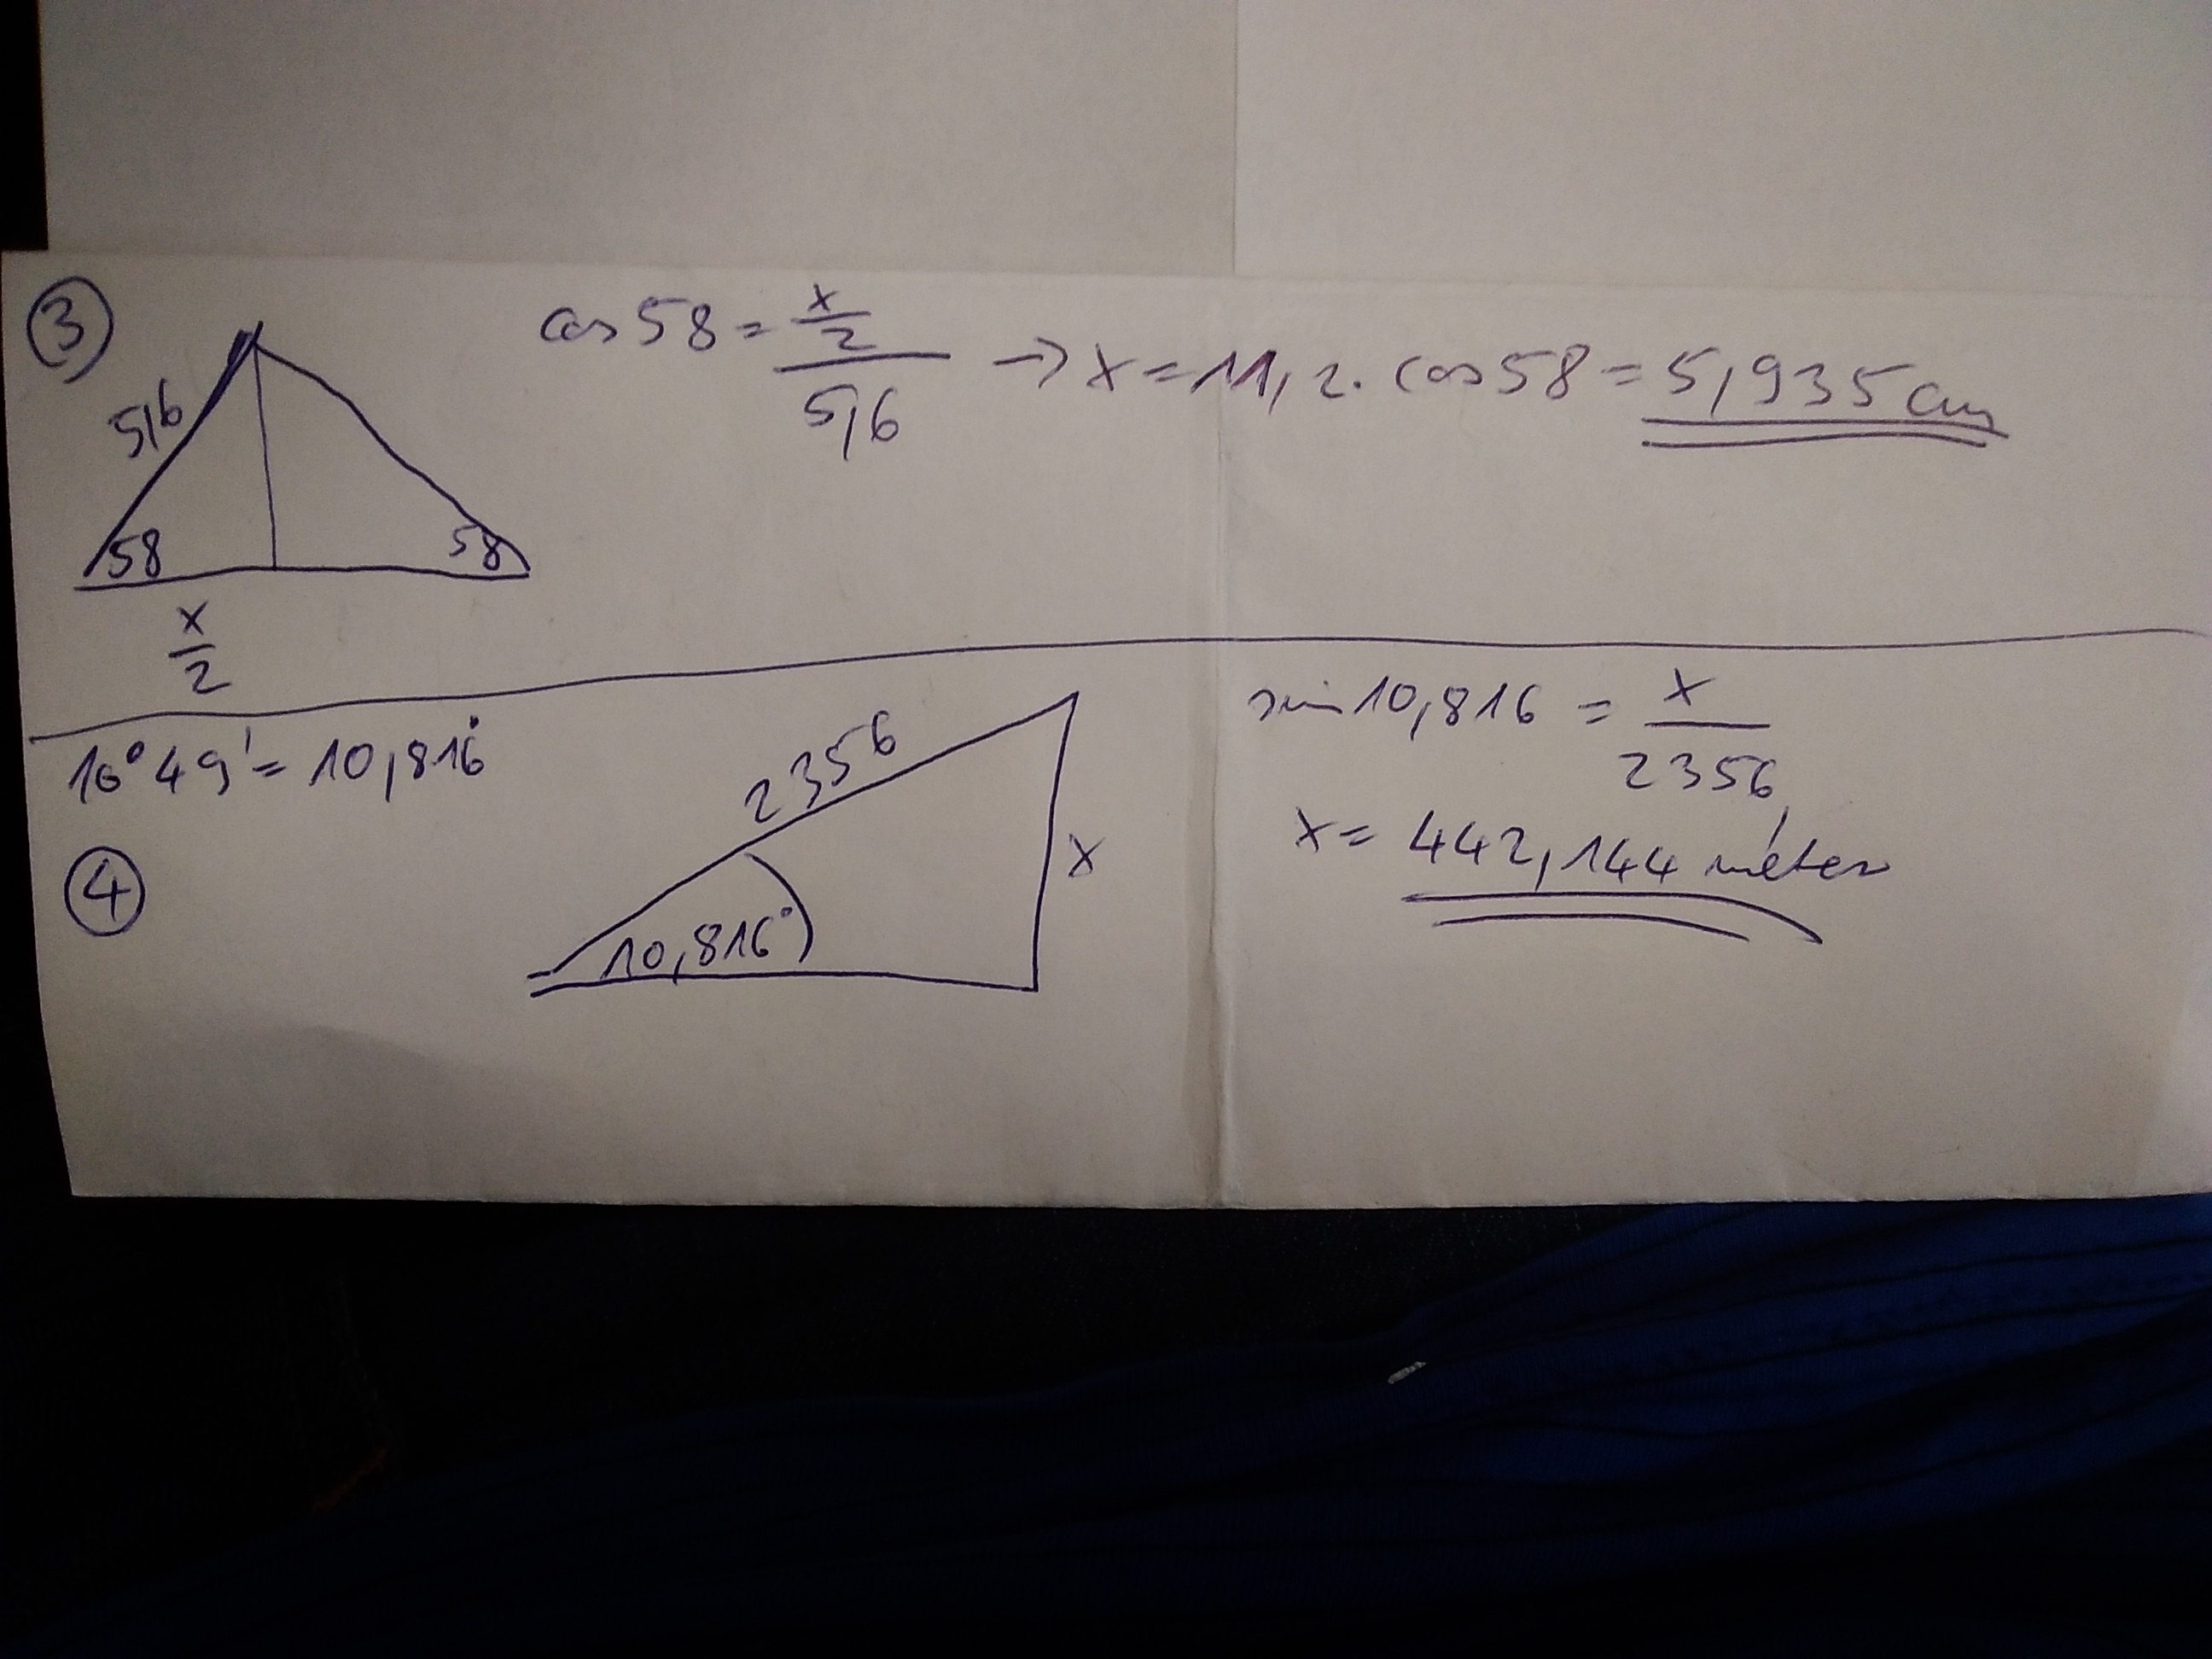 ③
5,6
58
58
x/2
cos 58 = (x/2)/5,6 → x = 11,2 · cos 58 = 5,935 cm
10° 49' = 10,816°
④
2356
10,816°
x
sin 10,816 = x/2356
x = 442,144 méter